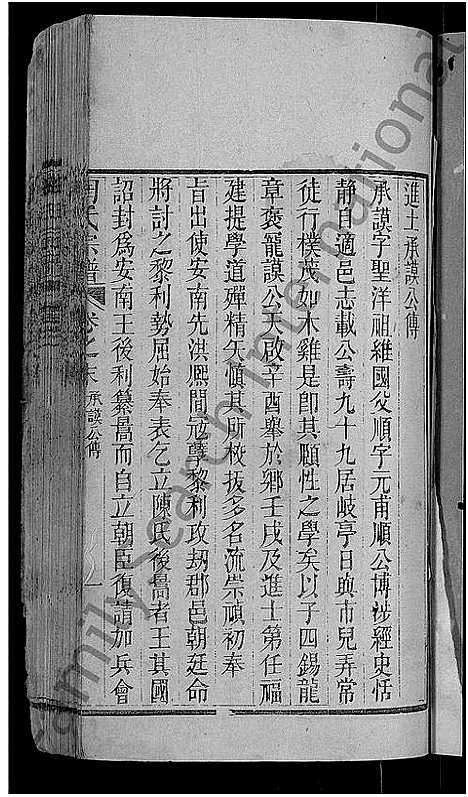 進士承謨公傳
承謨字聖洋祖維國父順字元甫順公博涉經史恬
静自適邑志載公壽九十九居岐亭日與市兒弄常
徒行樸茂如木雞是卽其願性之學矣以子四錫龍
章褒寵謨公天啟辛酉舉於鄉壬戌及進士第任福
建提學道殫精矢慎其所校拔多名流崇禎初奉
旨出使安南先洪熙間冦孽黎利攻刼郡邑朝廷命
將討之黎利勢屈始奉表乞立陳氏後暠者王其國
詔封爲安南王後利纂暠而自立朝臣復請加兵會
周氏宗譜 卷之末 承謨公傳 一
Family Search International